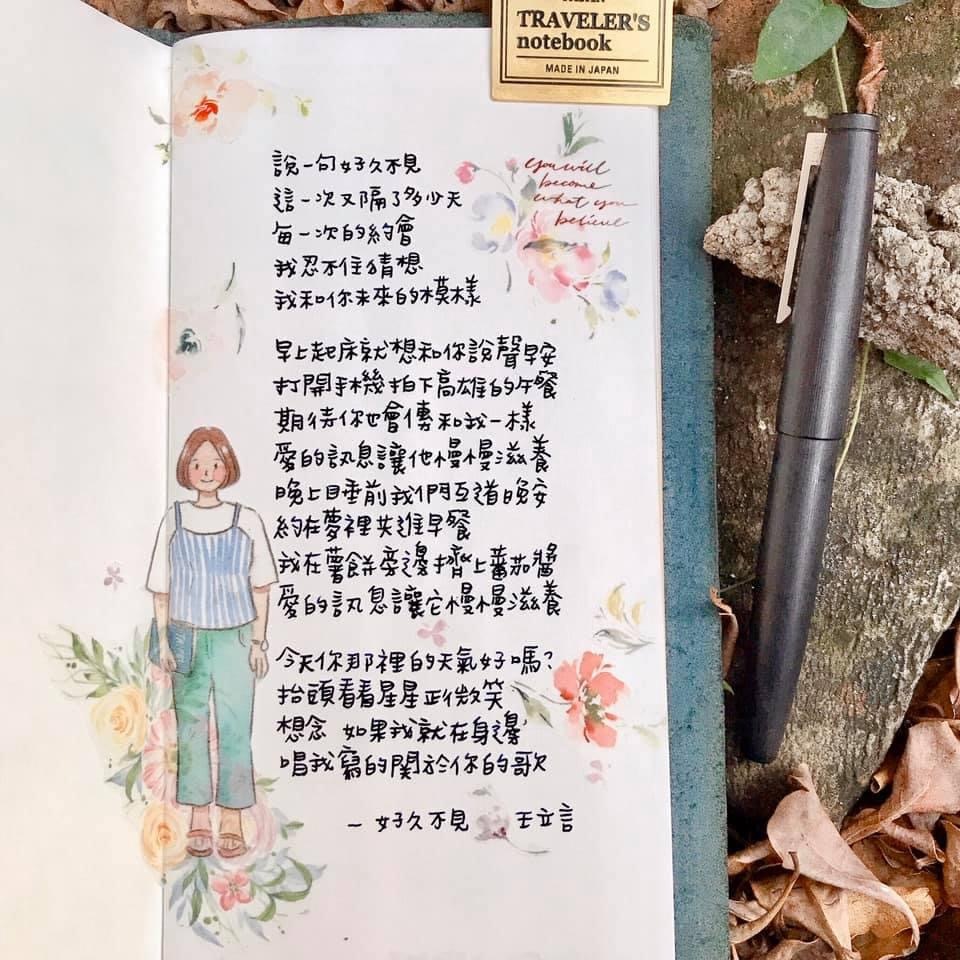 TRAVELER'S
notebook
MADE IN JAPAN
you will
become
what you
believe
說一句好久不見
這一次又隔了多少天
每一次的約會
我忍不住猜想
我和你未來的模樣
早上起床就想和你說聲早安
打開手機拍下高雄的午餐
期待你也會傳和我一樣
愛的訊息讓他慢慢滋養
晚上睡前我們互道晚安
約在夢裡共進早餐
我在薯餅旁邊擠上蕃茄醬
愛的訊息讓它慢慢滋養
今天你那裡的天氣好嗎?
抬頭看看星星正微笑
想念 如果我就在身邊
唱我寫的關於你的歌
— 好久不見 王立言